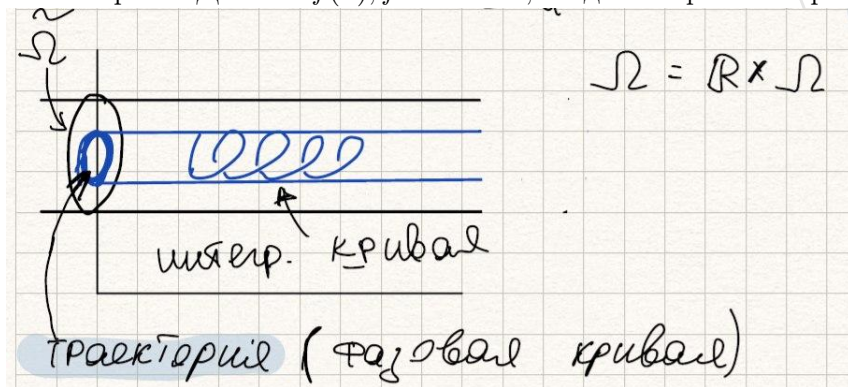 Ω̃
Ω = ℝ × Ω
интегр. кривая
траектория (фазовая кривая)